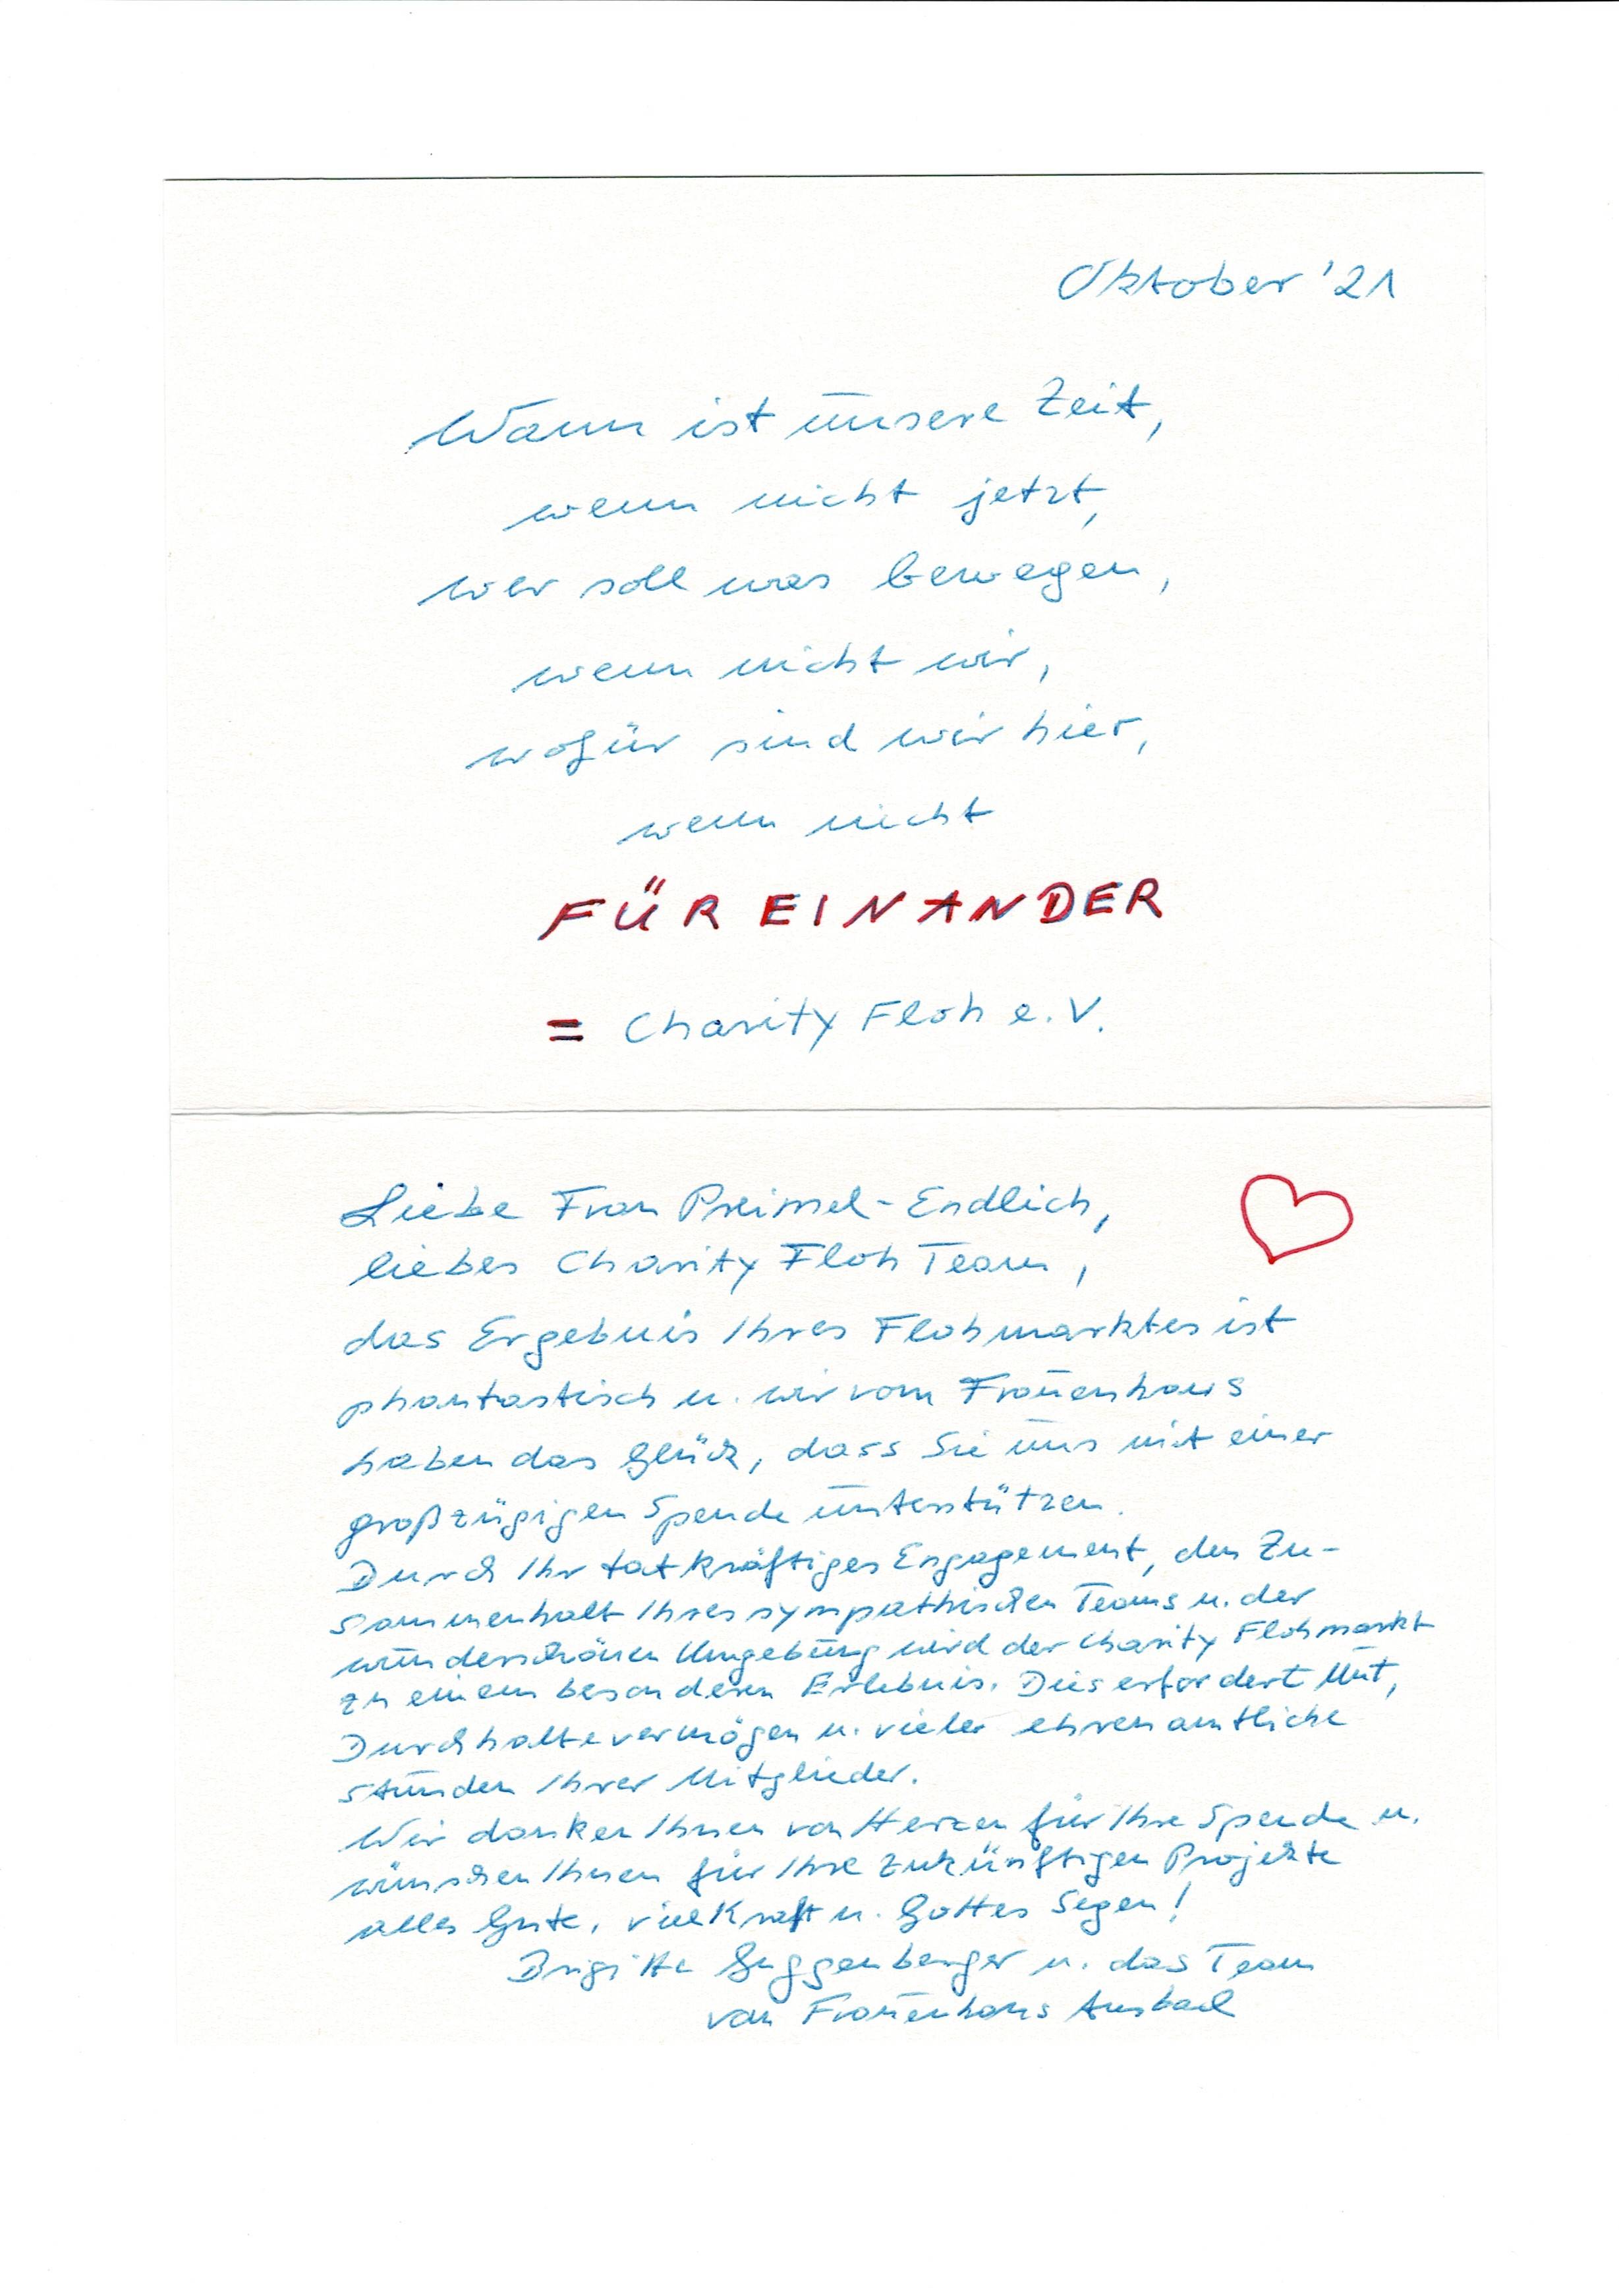 Oktober '21
Wann ist unsere Zeit,
wenn nicht jetzt,
wer soll was bewegen,
wenn nicht wir,
wofür sind wir hier,
wenn nicht
FÜREINANDER
= Charity Floh e.V.
Liebe Frau Preimel-Endlich,
liebes Charity Floh Team,
das Ergebnis Ihres Flohmarktes ist
phantastisch u. wir vom Frauenhaus
haben das Glück, dass Sie uns mit einer
großzügigen Spende unterstützen.
Durch Ihr tatkräftiges Engagement, den Zu-
sammenhalt Ihres sympathischen Teams u. der
wunderschönen Umgebung wird der Charity Flohmarkt
zu einem besonderen Erlebnis. Dies erfordert Mut,
Durchhaltevermögen u. vieler ehrenamtliche
Stunden Ihrer Mitglieder.
Wir danken Ihnen von Herzen für Ihre Spende u.
wünschen Ihnen für Ihre zukünftigen Projekte
alles Gute, viel Kraft u. Gottes Segen!
Brigitte Guggenberger u. das Team
von Frauenhaus Ansbach